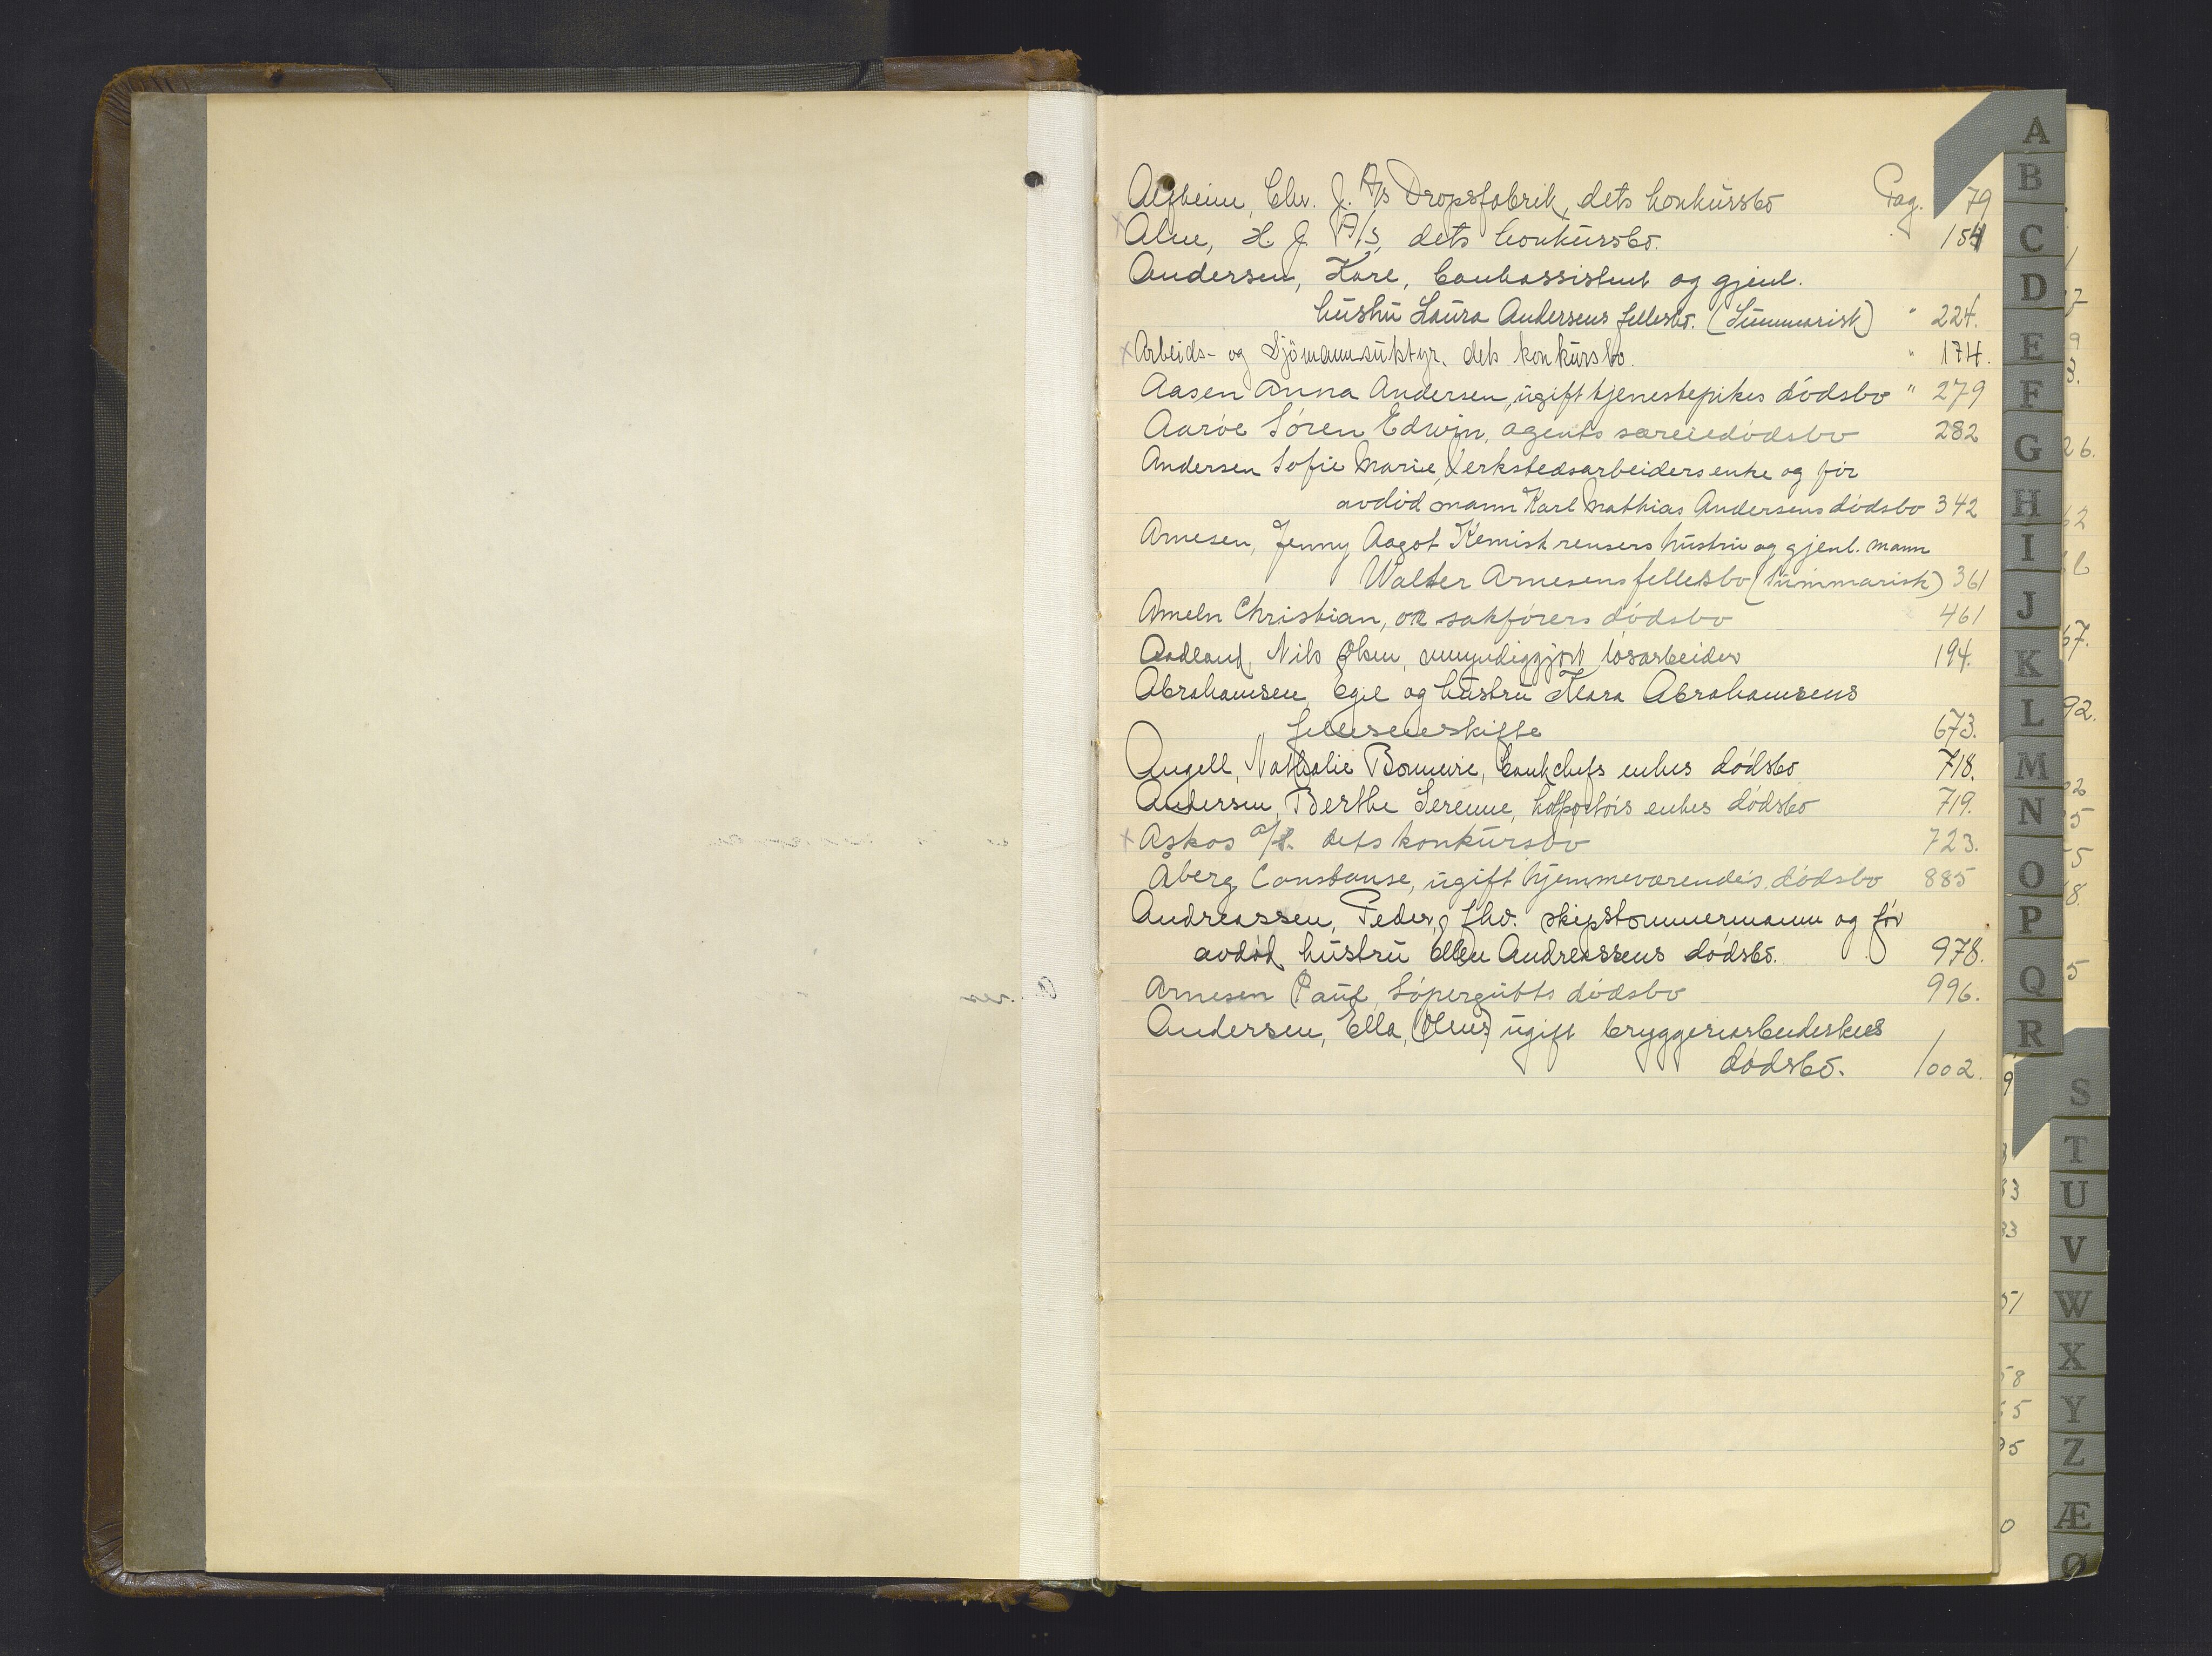 Alfheim, Chr. J. A/s Dropsfabrik, dets konkursbo Pag. 79
x Alm, H. J. A/S, dets konkursbo. 154
Andersen, Kare, bankassistent og gjenl.
hustru Laura Andersens fellesbo. (Summarisk) " 224.
x Arbeids- og Sjömannsutstyr. dets konkursbo. " 174.
Aasen Anna Andersen, ugift tjenestepikes dödsbo " 279
Aaröe Sören Edwin, agents særeiedödsbo 282
Andersen Sofie Marie, Verkstedsarbeiders enke og för
avdöd mann Karl Mathias Andersens dödsbo 342
Arnesen, Jenny Aagot Kemisk rensers hustru og gjenl. mann
Walter Arnesens fellesbo (summarisk) 361
Ameln Christian, or sakförers dödsbo 461
Aadland, Nils Olsen, umyndiggjort lösarbeider 194.
Abrahamsen, Egil og hustru Mara Abrahamsens
felleseieskifte 673.
Angell, Nathalie Bomeire, bankchefs enkes dödsbo 718.
Andersen, Berthe Serenne, enkes dödsbo 719.
x Askos a/s. dets konkursbo 723.
Åberg Constanse, ugift hjemmeværende's dödsbo 885
Andreassen, Peder, fhv. skipstömmermann og för
avdöd hustru Ellen Andreassens dödsbo. 978.
Arnesen Paul, Söpergutts dödsbo 996.
Andersen, Ella, (Olens) ugift bryggeriarbeiderskes
dödsbo. 1002.
A
B
C
D
E
F
G
H
I
J
K
L
M
N
O
P
Q
R
S
T
U
V
W
X
Y
Z
Æ
Ø